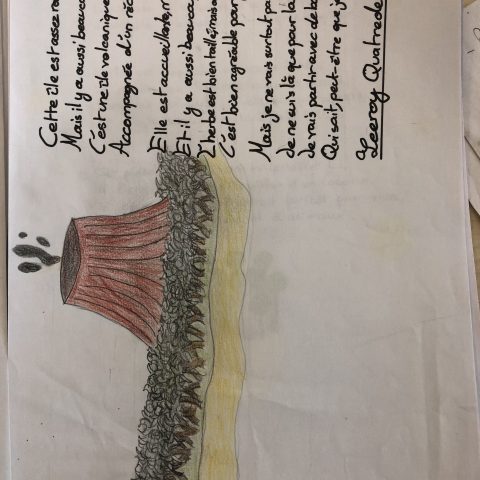 Cette île est assez ro
Mais il y a aussi beaucou
C'est une île volcanique
Accompagnée d'un réc
Elle est accueillante, m
Et il y a aussi beaucou
L'herbe est bien taillé, mais a
C'est bien agréable pour
Mais je ne vais surtout pa
Je ne suis là que pour la
Je vais partir avec de bo
Qui sait, peut-être que j
Leeroy Quatrede